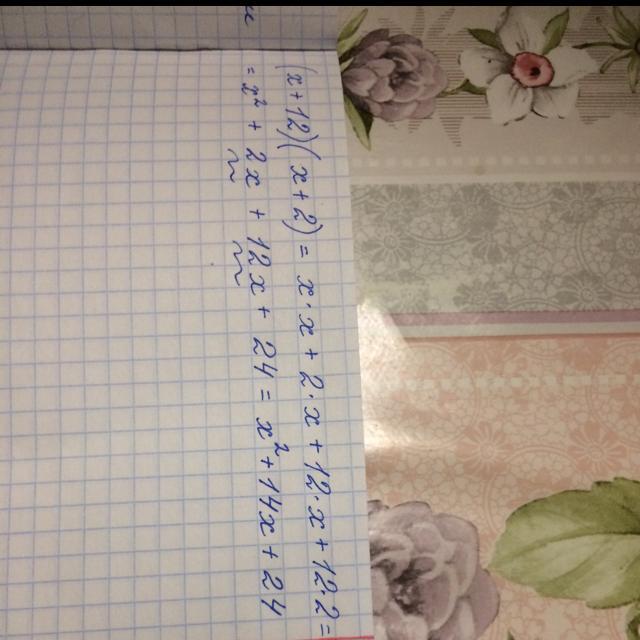 (x+12)(x+2) = x·x + 2·x + 12·x + 12·2 =
= x² + 2x + 12x + 24 = x² + 14x + 24